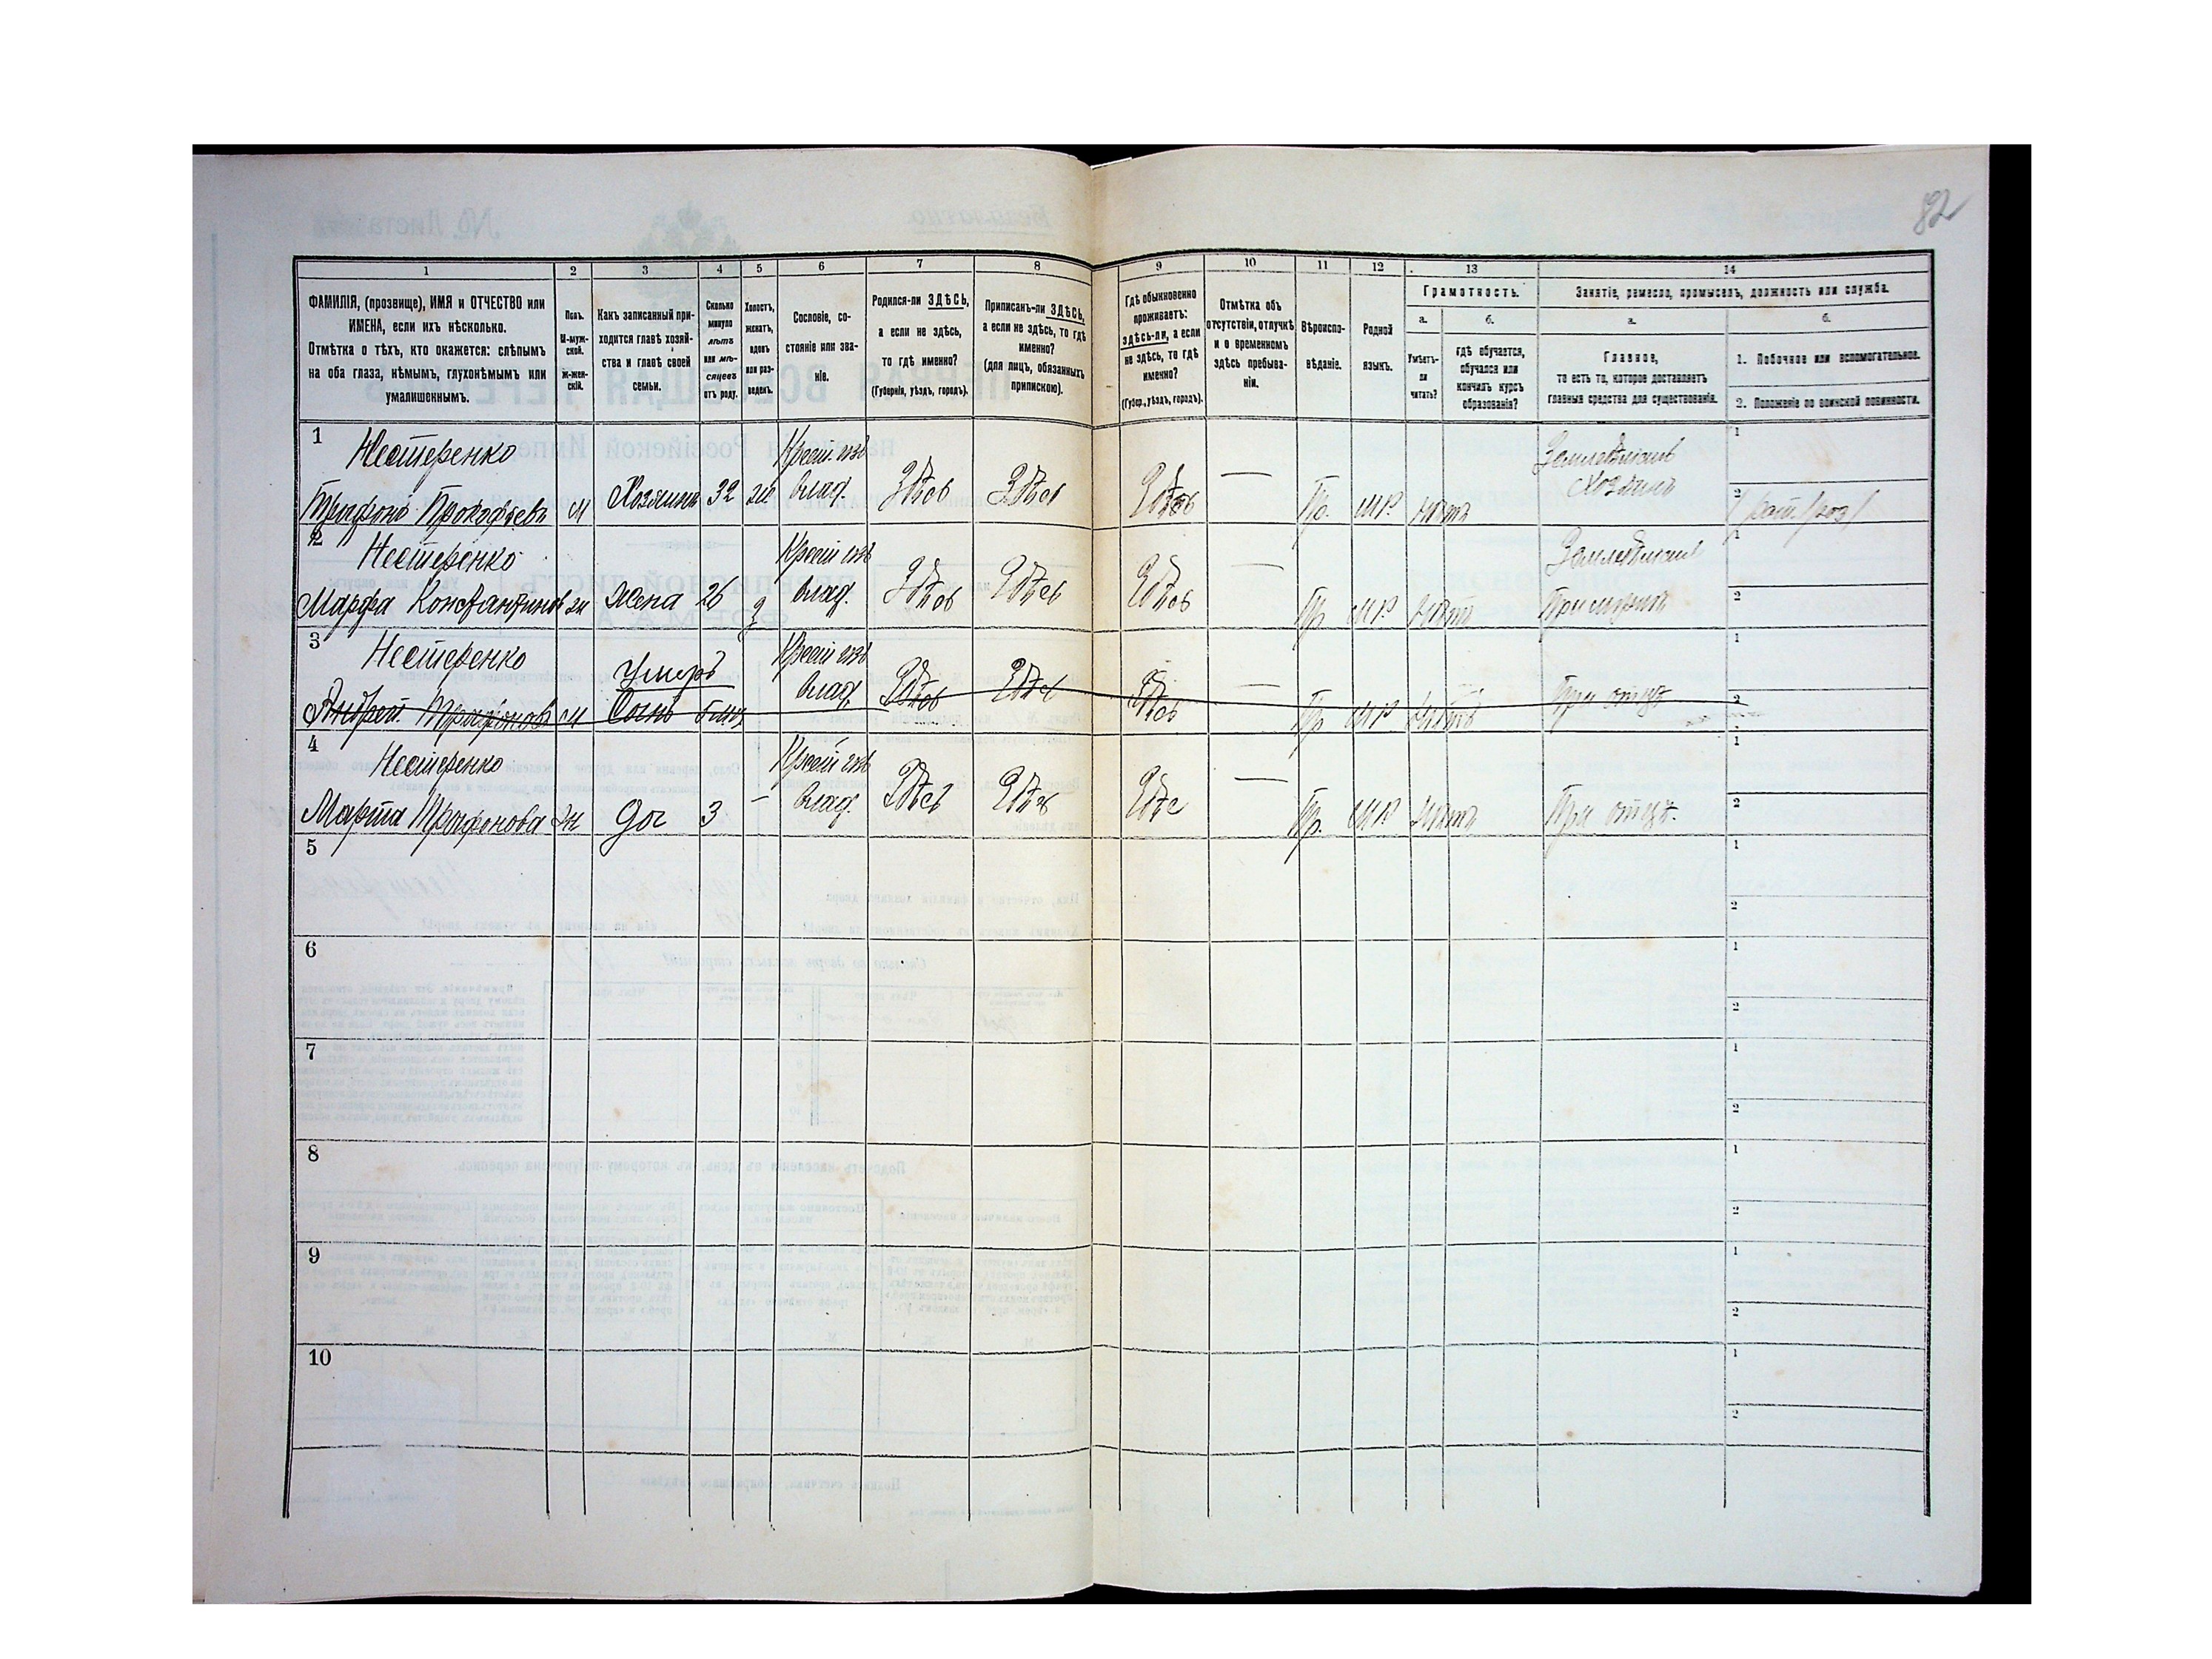 82
1 2 3 4 5 6 7 8 9 10 11 12 13 14
ФАМИЛІЯ, (прозвище), ИМЯ и ОТЧЕСТВО или
ИМЕНА, если ихъ нѣсколько.
Отмѣтка о тѣхъ, кто окажется: слѣпымъ
на оба глаза, нѣмымъ, глухонѣмымъ или
умалишеннымъ.
Полъ.
М-муж-
ской.
Ж-жен-
скій.
Какъ записанный при-
ходится главѣ хозяй-
ства и главѣ своей
семьи.
Сколько
минуло
лѣтъ
или мѣ-
сяцевъ
отъ роду.
Холостъ,
женатъ,
вдовъ
или раз-
веденъ.
Сословіе, со-
стояніе или зва-
ніе.
Родился-ли ЗДѢСЬ,
а если не здѣсь,
то гдѣ именно?
(Губернія, уѣздъ, городъ).
Приписанъ-ли ЗДѢСЬ,
а если не здѣсь, то гдѣ
именно?
(для лицъ, обязанныхъ
припискою).
Гдѣ обыкновенно
проживаетъ:
здѣсь-ли, а если
не здѣсь, то гдѣ
именно?
(Губер., уѣздъ, городъ).
Отмѣтка объ
отсутствіи, отлучкѣ
и о временномъ
здѣсь пребыва-
ніи.
Вѣроиспо-
вѣданіе.
Родной
языкъ.
Грамотность.
а.
Умѣетъ-
ли
читать?
б.
гдѣ обучается,
обучался или
кончилъ курсъ
образованія?
Занятіе, ремесло, промыселъ, должность или служба.
а.
Главное,
то есть то, которое доставляетъ
главныя средства для существованія.
б.
1. Побочное или вспомогательное.
2. Положеніе по воинской повинности.
1
Нестеренко Крест. изъ Земледѣліемъ
Трифонъ Прокофьевъ м Хозяинъ 32 ж влад. Здѣсь Здѣсь Здѣсь — Пр. МР. нѣтъ Хозяинъ
2
Нестеренко Крест изъ
Марфа Константинов ж Жена 26 з влад. Здѣсь Здѣсь Здѣсь — Пр МР. Нѣтъ
3
Нестеренко Умеръ Крест изъ
Андрей Трифоновъ м Сынъ влад. Здѣсь Здѣсь Здѣсь — Пр МР. Нѣтъ При отцѣ
4
Нестеренко Крест изъ
Марта Трифонова ж Доч 3 — влад. Здѣсь Здѣс Здѣс — Пр. МР Нѣтъ При отцѣ.
5
6
7
8
9
10